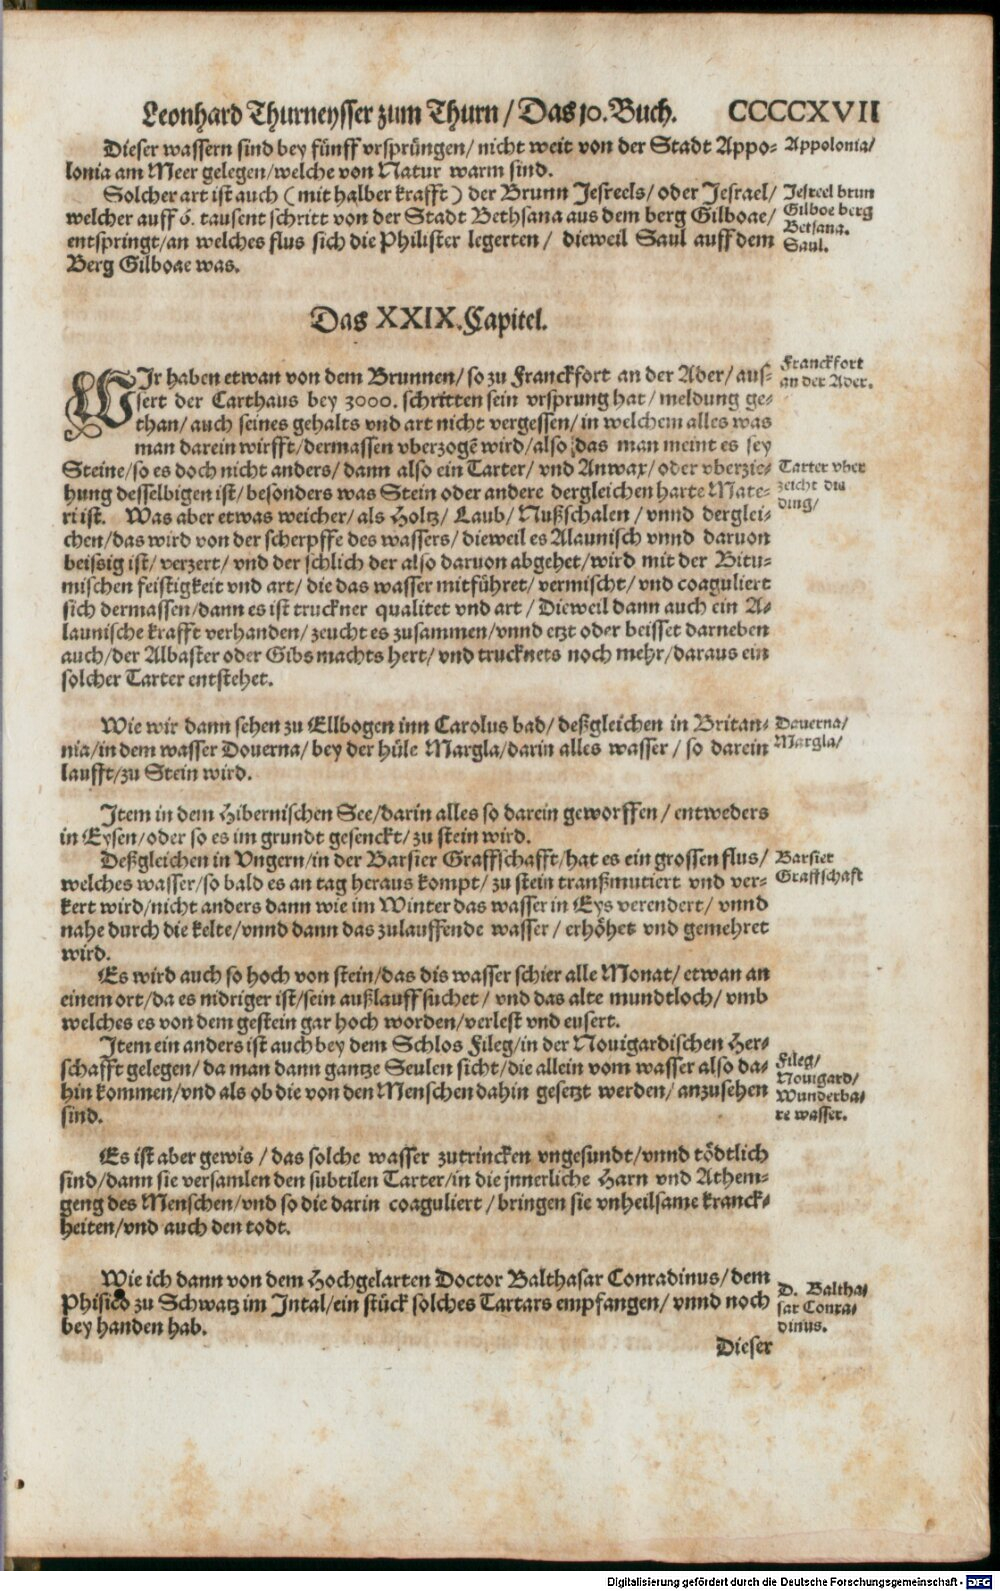 Leonhard Thurneysser zum Thurn / Das 10. Buch. CCCCXVII
Dieser wassern sind bey fünff vrsprüngen / nicht weit von der Stadt Appo-
lonia am Meer gelegen / welche von Natur warm sind.
Appolonia/
Solcher art ist auch ( mit halber krafft ) der Brunn Jesreels / oder Jesrael /
welcher auff 6. tausent schritt von der Stadt Bethsana aus dem berg Gilboae /
entspringt / an welches flus sich die Philister legerten / dieweil Saul auff dem
Berg Gilboae was.
Jesreel brun
Gilboe berg
Betsana.
Saul.
Das XXIX. Capitel.
WIr haben etwan von dem Brunnen / so zu Franckfort an der Ader / aus-
sert der Carthaus bey 3000. schritten sein vrsprung hat / meldung ge-
than / auch seines gehalts vnd art nicht vergessen / in welchem alles was
man darein wirfft / dermassen vberzogē wird / also das man meint es sey
Steine / so es doch nicht anders / dann also ein Tarter / vnd Anwax / oder vberzie-
hung desselbigen ist / besonders was Stein oder andere dergleichen harte Mate-
ri ist. Was aber etwas weicher / als Holtz / Laub / Nußschalen / vnnd derglei-
chen / das wird von der scherpffe des wassers / dieweil es Alaunisch vnnd daruon
beissig ist / verzert / vnd der schlich der also daruon abgehet / wird mit der Bitu-
mischen feistigkeit vnd art / die das wasser mitführet / vermischt / vnd coaguliert
sich dermassen / dann es ist truckner qualitet vnd art / Dieweil dann auch ein A-
launische krafft verhanden / zeucht es zusammen / vnnd etzt oder beisset darneben
auch / der Albaster oder Gibs machts hert / vnd trucknets noch mehr / daraus ein
solcher Tarter entstehet.
Franckfort
an der Ader.
Tarter vber
zeicht die
ding/
Wie wir dann sehen zu Ellbogen inn Carolus bad / deßgleichen in Britan-
nia / in dem wasser Douerna / bey der hüle Margla / darin alles wasser / so darein
laufft / zu Stein wird.
Douerna/
Margla/
Item in dem Hibernischen See / darin alles so darein geworffen / entweders
in Eysen / oder so es im grundt gesenckt / zu stein wird.
Deßgleichen in Vngern / in der Barsier Graffschafft / hat es ein grossen flus /
welches wasser / so bald es an tag heraus kompt / zu stein tranßmutiert vnd ver-
kert wird / nicht anders dann wie im Winter das wasser in Eys verendert / vnnd
nahe durch die kelte / vnnd dann das zulauffende wasser / erhöhet vnd gemehret
wird.
Barsier
Graffschaft
Es wird auch so hoch von stein / das dis wasser schier alle Monat / etwan an
einem ort / da es nidriger ist / sein außlauff suchet / vnd das alte mundtloch / vmb
welches es von dem gestein gar hoch worden / verlest vnd eusert.
Item ein anders ist auch bey dem Schlos Fileg / in der Nouigardischen Her-
schafft gelegen / da man dann gantze Seulen sicht / die allein vom wasser also da-
hin kommen / vnd als ob die von den Menschen dahin gesetzt werden / anzusehen
sind.
Fileg/
Nouigard/
Wunderba-
re wasser.
Es ist aber gewis / das solche wasser zutrincken vngesundt / vnnd tödtlich
sind / dann sie versamlen den subtilen Tarter / in die jnnerliche Harn vnd Athem-
geng des Menschen / vnd so die darin coaguliert / bringen sie vnheilsame kranck-
heiten / vnd auch den todt.
Wie ich dann von dem Hochgelarten Doctor Balthasar Conradinus / dem
Phisico zu Schwatz im Intal / ein stück solches Tartars empfangen / vnnd noch
bey handen hab.
D. Baltha-
sar Conra-
dinus.
Dieser
Digitalisierung gefördert durch die Deutsche Forschungsgemeinschaft - DFG